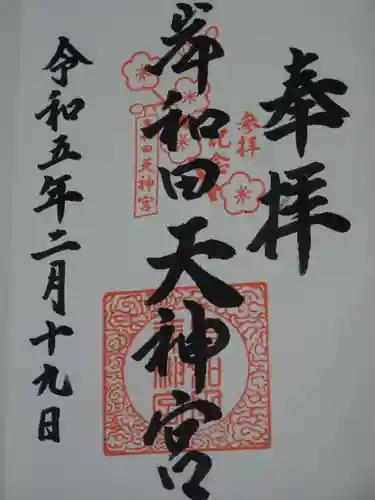 奉拝
参拝
記念
岸和田天神宮
岸和田天神宮
令和五年二月十九日